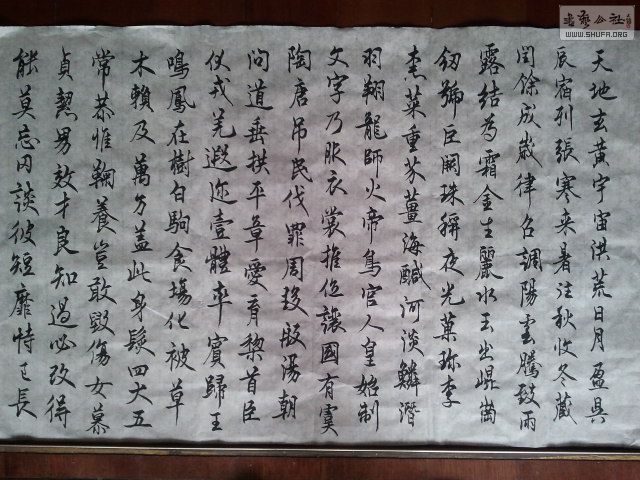 天地玄黄宇宙洪荒日月盈昃
辰宿列張寒来暑往秋收冬藏
閏餘成歲律召調陽雲騰致雨
露結為霜金生麗水玉出崑崗
劍號巨闕珠稱夜光菓珍李
柰菜重芥薑海鹹河淡鱗潛
羽翔龍師火帝鳥官人皇始制
文字乃服衣裳推位讓國有虞
陶唐吊民伐罪周發殷湯朝
問道垂拱平章愛育黎首臣
伏戎羌遐迩壹體率賓歸王
鳴鳳在樹白駒食場化被草
木賴及萬方蓋此身髮四大五
常恭惟鞠養豈敢毀傷女慕
貞絜男效才良知過必改得
能莫忘罔談彼短靡恃己長
书艺公社
WWW.SHUFA.ORG